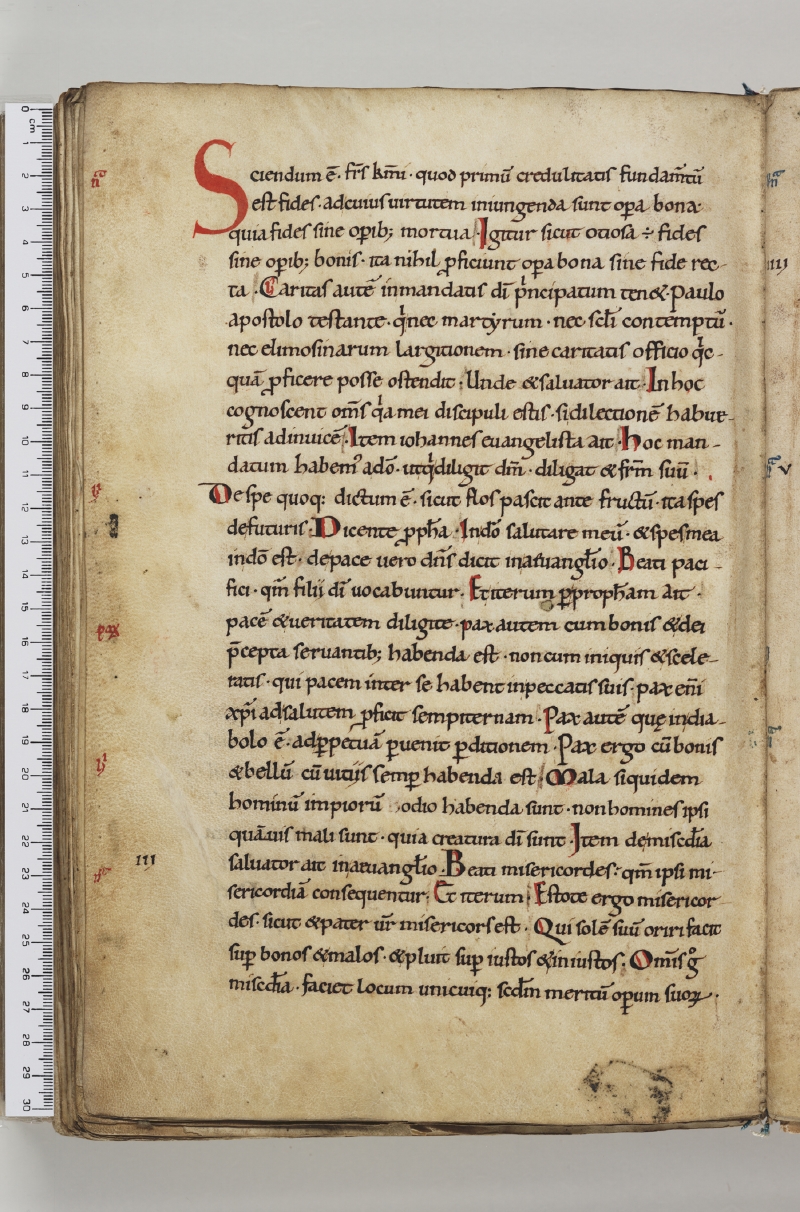 Sciendum ē· fr̄s km̄i · quod primū credulitatis fundam̄tū
est fides· ad cuius uirtutem iniungenda sunt op̄a bona·
quia fides sine op̄ib; mortua· Igitur sicut otiosa ÷ fides
sine op̄ib; bonis· ita nihil ꝓficiunt op̄a bona sine fide rec-
ta · Caritas autē in mandatis dī pͥncipatum ten&· Paulo
apostolo testante· qͥ nec martyrum · nec sc̄li contemptū·
nec elimosinarum largitionem · sine caritatis officio qͥc-
quā ꝓficere posse ostendit· Unde & saluator ait· In hoc
cognoscent om̄s qͥa mei discipuli estis· si dilectionē habue-
ritis ad inuicē· Item iohannes euangelista ait· Hoc man-
datum habem᾽ a dō· ut qͥ diligit dm̄ · diligat & fr̄m suū·
De spe quoq: dictum ē· sicut flos pascit ante fructū· ita spes
de futuris· Dicente ꝓph̄a· In dō salutare meū· & spes mea
in dō est· de pace uero dn̄s dicit in æuangl̄io· Beati paci-
fici· qm̄ filii dī uocabuntur· Et iterum ꝑ proph̄am ait·
pacē & ueritatem diligite· pax autem cum bonis & dei
p̄cepta seruantib; habenda est · non cum iniquis & scele-
ratis· qui pacem inter se habent in peccatis suis· pax en̄i
xp̄i ad salutem ꝓficit sempiternam · Pax autē quę in dia-
bolo ē· ad ꝑpetuā ꝑuenit ꝑditionem · Pax ergo cū bonis
& bellū cū uitiis semꝑ habenda est· Mala siquidem
hominū impiorū odio habenda sunt· non homines ipsi
quāuis mali sunt· quia creatura dī sunt· Item de mise͞dia
saluator ait in æuangl̄io· Beati misericordes· qm̄ ipsi mi-
sericordiā consequentur· Et iterum· Estote ergo misericor
des· sicut & pater ur̄ misericors est· Qui solē suū oriri facit
suꝑ bonos & malos· & pluit suꝑ iustos & iniustos· Om̄is gͦ
mise͞dia· faciet locum unicuiq: sed̄m meritū oꝑum suoꝝ·
pax
III
III
V